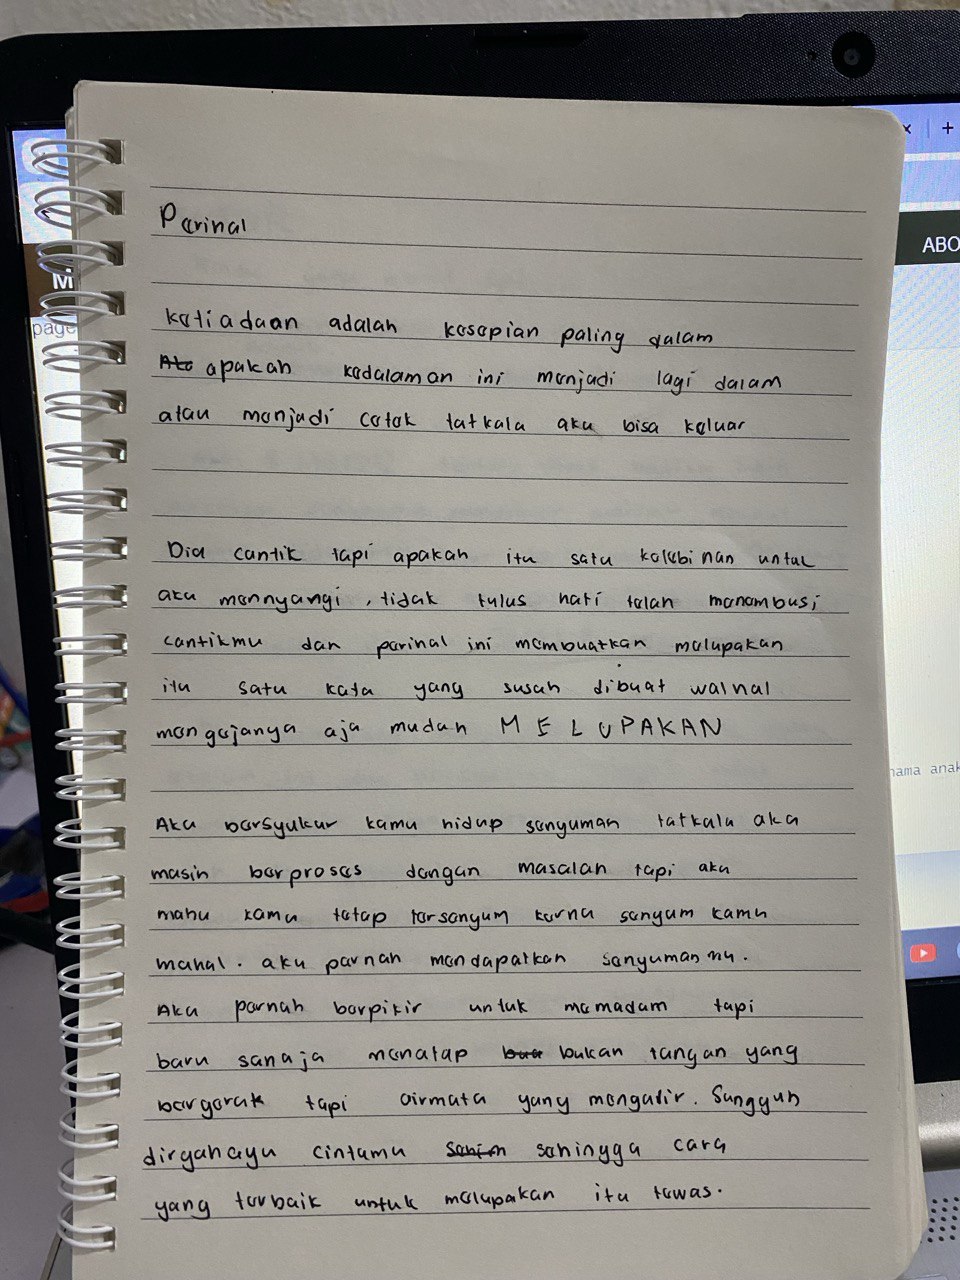 Perinal
ketiadaan adalah kesepian paling dalam
apakah kedalaman ini menjadi lagi dalam
atau menjadi cetek tatkala aku bisa keluar
Dia cantik tapi apakah itu satu kelebihan untuk
aku mennyangi, tidak tulus hati telah menembusi
cantikmu dan perihal ini membuatkan melupakan
itu satu kata yang susah dibuat walhal
mengejanya aja mudah MELUPAKAN
Aku bersyukur kamu hidup senyuman tatkala aku
masih berproses dengan masalah tapi aku
mahu kamu tetap tersenyum kerna senyum kamu
mahal. aku pernah mendapatkan senyumanmu.
Aku pernah berpikir untuk memadam tapi
baru sahaja menatap bua bukan tangan yang
bergerak tapi airmata yang mengalir. Sungguh
dirgahayu cintamu sehingga cara
yang terbaik untuk melupakan itu tewas.
ABO
page
nama anak